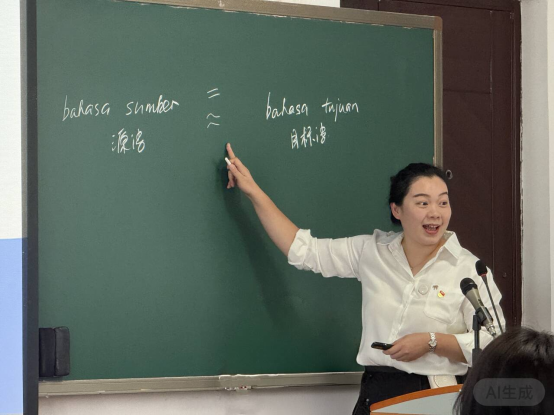 bahasa sumber = bahasa tujuan
≈
源语 目标语
AI生成